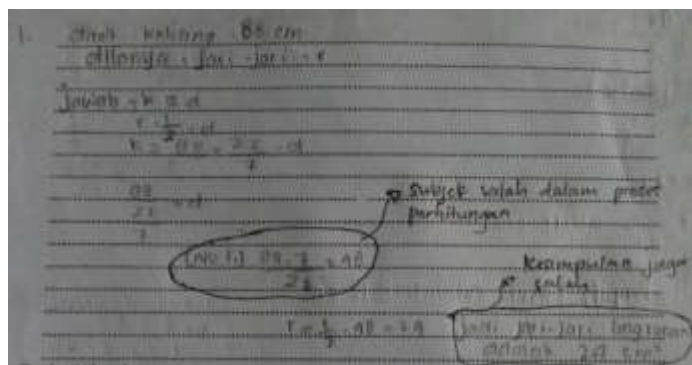 1. diket keliling 88 cm
ditanya = jari-jari = r
jawab = k = d
r = 1/2 · d
k = 88 = 22/7 · d
88
22 = d
7
Subjek salah dalam proses
perhitungan
[No 1.] 88 · 7 / 22 =
Kesimpulan juga
salah
r = 1/2 ·
jadi jari-jari lingkaran
adalah